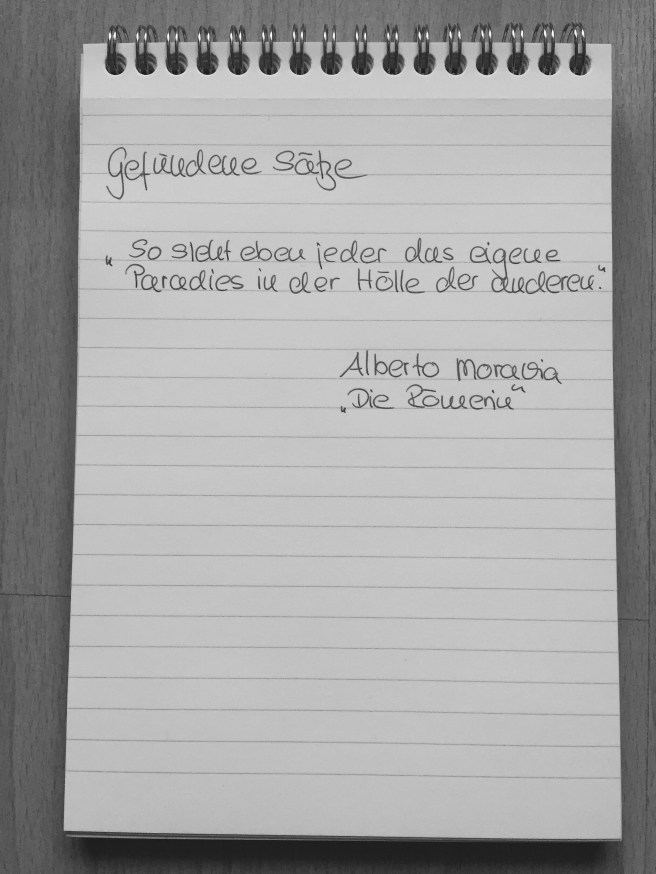 Gefundene Sätze
„So sieht eben jeder das eigene
Paradies in der Hölle der anderen."
Alberto Moravia
„Die Römerin"